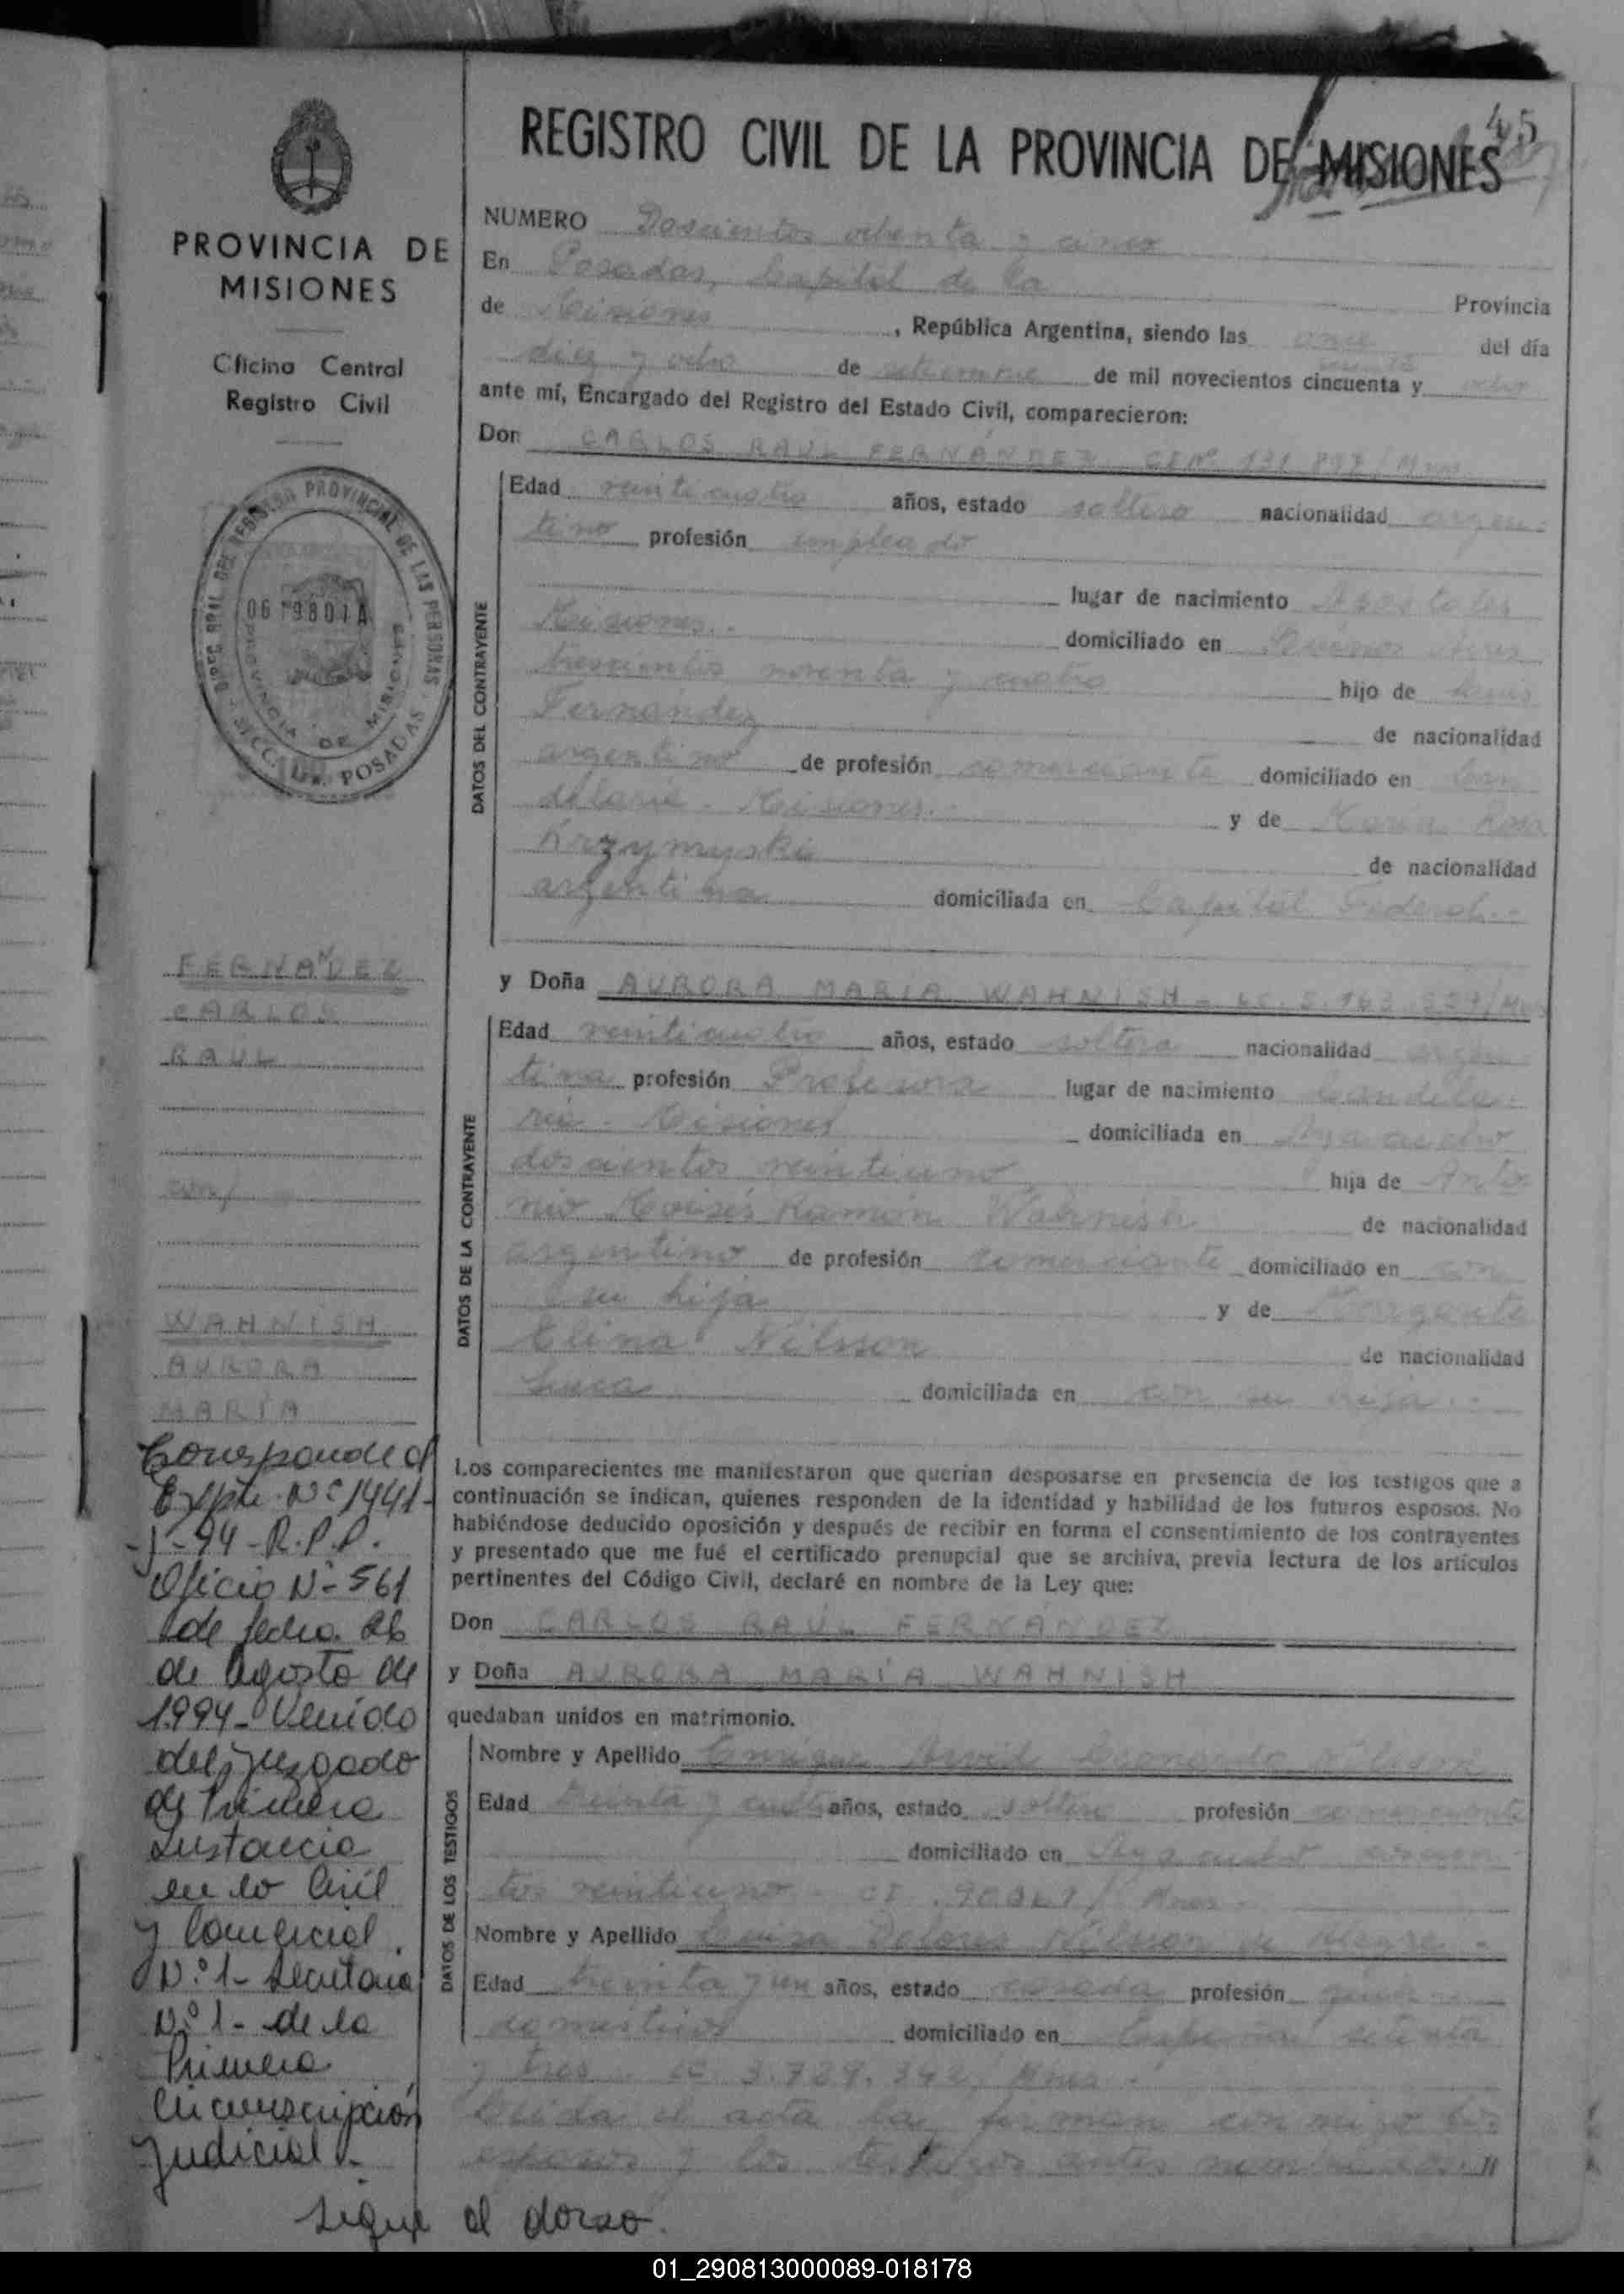 45
REGISTRO CIVIL DE LA PROVINCIA DE MISIONES
PROVINCIA DE
MISIONES
Oficina Central
Registro Civil
DIREC. GRAL. DEL REGISTRO PROVINCIAL DE LAS PERSONAS
PROVINCIA DE MISIONES
POSADAS
NUMERO Doscientos ochenta y cinco
En Posadas, Capital de la Provincia
de Misiones, República Argentina, siendo las once del día
diez y ocho de setiembre de mil novecientos cincuenta y ocho
ante mí, Encargado del Registro del Estado Civil, comparecieron:
Don CARLOS RAUL FERNÁNDEZ
DATOS DEL CONTRAYENTE
Edad veinticuatro años, estado soltero nacionalidad argen-
tino profesión empleado
lugar de nacimiento Apóstoles
Misiones.- domiciliado en Buenos Aires
trescientos noventa y cuatro hijo de Luis
Fernández de nacionalidad
argentino de profesión comerciante domiciliado en Can
delaria - Misiones.- y de María Rosa
Krzymyski de nacionalidad
argentina domiciliada en Capital Federal.-
FERNANDEZ
CARLOS
RAUL
con/
WAHNISH
AURORA
MARÍA
y Doña AURORA MARIA WAHNISH
DATOS DE LA CONTRAYENTE
Edad veinticuatro años, estado soltera nacionalidad argen
tina profesión Profesora lugar de nacimiento Candela-
ria - Misiones domiciliada en Ayacucho
doscientos veintiuno hija de Anto
nio Moisés Ramón Wahnish de nacionalidad
argentino de profesión comerciante domiciliado en con
su hija y de Margarita
Elina Nilsson de nacionalidad
Sueca domiciliada en con su hija.-
Los comparecientes me manifestaron que querían desposarse en presencia de los testigos que a
continuación se indican, quienes responden de la identidad y habilidad de los futuros esposos. No
habiéndose deducido oposición y después de recibir en forma el consentimiento de los contrayentes
y presentado que me fué el certificado prenupcial que se archiva, previa lectura de los artículos
pertinentes del Código Civil, declaré en nombre de la Ley que:
Don CARLOS RAÚL FERNÁNDEZ
y Doña AURORA MARÍA WAHNISH
quedaban unidos en matrimonio.
DATOS DE LOS TESTIGOS
Nombre y Apellido Enrique Arvid Leonardo Nilsson
Edad treinta y cuatro años, estado soltero profesión comerciante
domiciliado en Ayacucho doscien-
tos veintiuno
Nombre y Apellido Luisa Dolores Nilsson de
Edad treinta y un años, estado casada profesión
domésticos domiciliado en setenta
y tres
Leída el acta la firman conmigo los
esposos y los testigos antes nombrados.//
Corresponde al
Expte. Nº 1441-
-J-94-R.P.P.
Oficio Nº 561
de fecha 26
de Agosto de
1994- Venido
del juzgado
de Primera
Instancia
en lo Civil
y Comercial
Nº 1- Secretaria
Nº 1- de la
Primera
Circunscripción
Judicial.-
sigue al dorso.
01_290813000089-018178